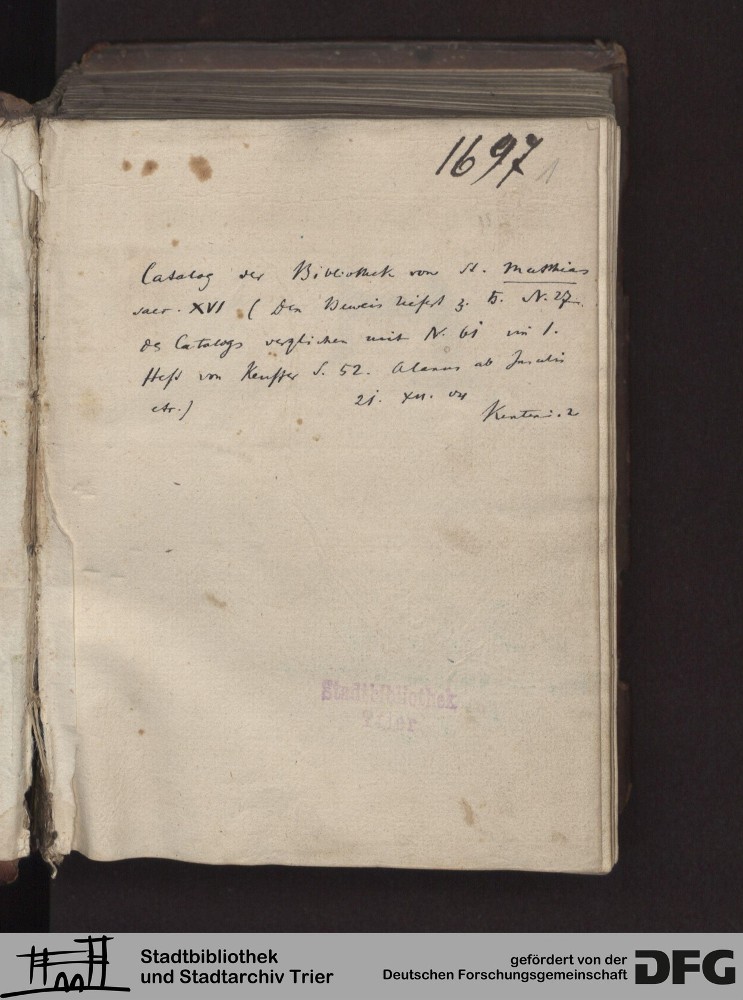 1697
1
Catalog der Bibliothek von St. Matthias
saec. XVI ( Den Beweis liefert z. B. N. 27
des Catalogs verglichen mit N. 61 im 1.
Heft von Keuffer S. 52. Alanus ab Insulis
etc.)
21. XII. 04
Kentenich
Stadtbibliothek
Trier
Stadtbibliothek
und Stadtarchiv Trier
gefördert von der
Deutschen Forschungsgemeinschaft
DFG